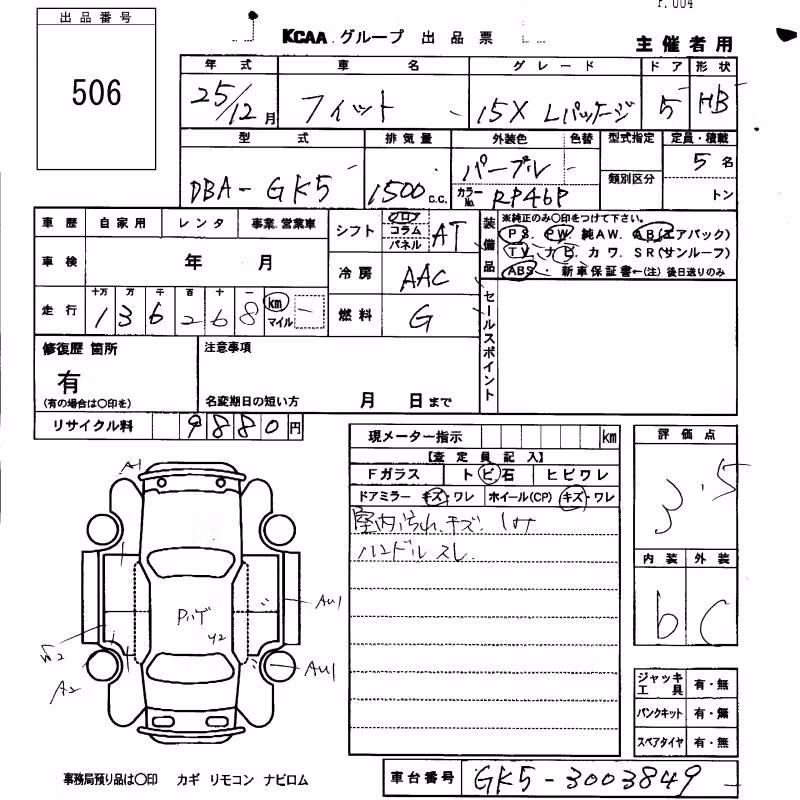 P.004
出品番号
506
KCAA グループ 出品票
主催者用
年式 車名 グレード ドア 形状
25/12月 フィット 15X Lパッケージ 5 HB
型式 排気量 外装色 色替 型式指定 定員・積載
DBA-GK5 1500c.c. パープル 5名
カラーNo. RP46P 類別区分 トン
車歴 自家用 レンタ 事業.営業車
シフト フロア コラム パネル AT
装備品
※純正のみ〇印をつけて下さい。
PS. PW 純AW. AB(エアバック)
TV. ナビ. カワ. SR(サンルーフ)
ABS ・ 新車保証書←(注) 後日送りのみ
車検 年 月
冷房 AAC
走行 十万 万 千 百 十 一
136268 km マイル
燃料 G
セールスポイント
修復歴 箇所
有
(有の場合は〇印を)
注意事項
名変期日の短い方 月 日まで
リサイクル料 9880円
現メーター指示 km
【査定員記入】
Fガラス トビ石 ヒビワレ
ドアミラー キズ・ワレ ホイール(CP) キズ・ワレ
室内汚れ.キズ.
ハンドルスレ
評価点
3.5
内装 外装
b C
A1
AU1
W2
A2
Y2
AU1
ジャッキ工具 有・無
パンクキット 有・無
スペアタイヤ 有・無
事務局預り品は〇印 カギ リモコン ナビロム
車台番号 GK5-3003849